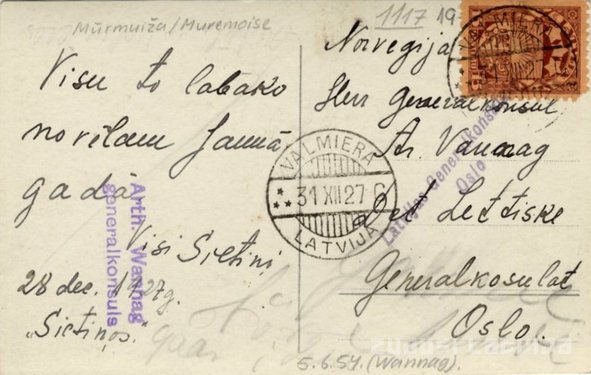 Mūrmuiža/Muremoise
1117 19
Visu to labako
novēlam Jaunā
gadā
Visi Sietiņi
28 dec. 1927g.
„Sietiņos."
Arth. Wannag
generalkonsuls
Norvegijā
Herr Generalkonsul
Ar. Vannag
Det Lettiske
Generalkosulat
Oslo.
Latvijas Generalkonsulats
Oslo
VALMIERA
31 XII 27 G
LATVIJA
VALMIERA
5.6.54. (Wannag).